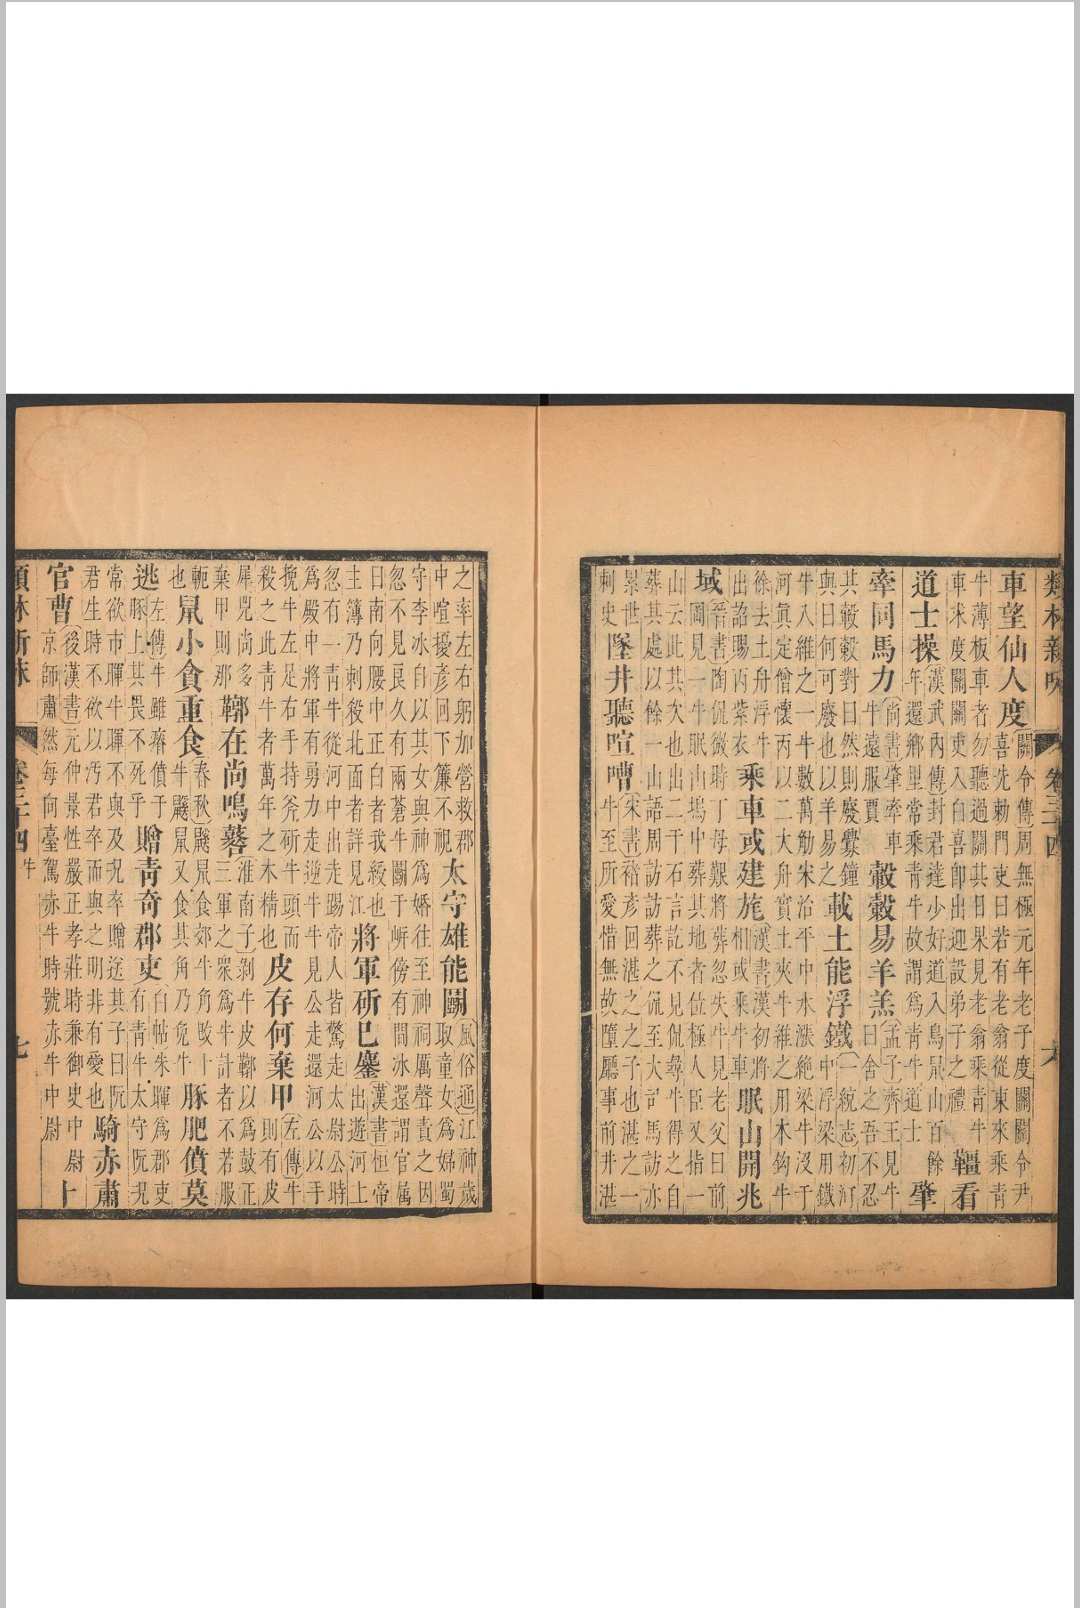 類林新咏 卷三十四 六
車望仙人度 關令傳周無極元年老子度關關令尹
喜先勅門吏曰若有老翁從東來乘青
牛薄板車者勿聽過關其日果見老翁乘青牛
車求度關關吏入白喜卽出迎設弟子之禮 疆看
道士操 漢武內傳封君達少好道入鳥鼠山百餘
年還鄉里常乘青牛故謂爲青牛道士 肇
牽同馬力 尚書肇牽車
牛遠服賈 轂觳易羊羔 孟子齊王見牛
曰舍之吾不忍
其觳觫對曰然則廢釁鐘
與曰何可廢也以羊易之 載土能浮鐵 一統志初河
中浮梁用鐵
牛入維之一牛數萬觔宋治平中水漲絶梁牛沒于
河眞定僧懷丙以二大舟實土夾牛維之用木鈎牛
徐去土舟浮牛
出詔賜丙紫衣 乘車或建旄 漢書漢初將
相或乘牛車 眠山開兆
域 晉書陶侃微時丁母艱將葬忽失牛見老父曰前
岡見一牛眠山塢中葬其地者位極人臣又指一
山云此其次也出二千石言訖不見侃尋牛得之自
葬其處以餘一山語周訪訪葬之侃至大司馬訪亦
景世
刺史 墜井聽喧嘈 宋書褚彥回湛之之子也湛之一
牛至所愛惜無故墮廳事前井湛
之率左右躬加營救郡
中喧擾彥回下簾不視 太守雄能鬭 風俗通江神歲
取童女爲婦蜀
守李冰自以其女與神爲婚往至神祠厲聲責之因
忽不見良久有兩蒼牛鬭于岍傍有間冰還謂官屬
曰南向腰中正白者我綬也
主簿乃刺殺北面者詳見江 將軍斫已鏖 漢書桓帝
出遊河上
忽有一青牛從河中出走踢帝人皆驚走太尉公時
爲嚴中將軍有勇力走逆牛牛見公走還河公以手
挽牛左足右手持斧斫牛頭而
殺之此青牛者萬年之木精也 皮存何棄甲 左傳牛
則有皮
犀兕尚多
棄甲則那 鞹在尚鳴鼛 淮南子剝牛皮鞹以爲鼓正
三軍之衆爲牛計者不若服
軛
也 鼠小貪重食 春秋鼷鼠食郊牛角改卜
牛鼷鼠又食其角乃免牛 豚肥僨莫
逃 左傳牛雖瘠僨于
豚上其畏不死乎 贈青奇郡吏 白帖朱暉爲郡吏
有青牛太守阮況
常欲市暉牛暉不與及況卒贈送其子曰阮
君生時不欲以汚君卒而與之明非有愛也 騎赤肅
官曹 後漢書元仲景性嚴正孝莊時兼御史中尉
京師肅然每向臺駕赤牛時號赤牛中尉 十
類林新咏 卷三十四 牛 七